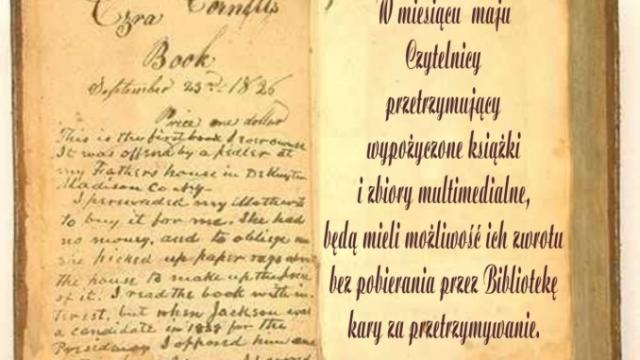 Ezra Cornell's
Book
September 23rd. 1826
Price one dollar
This is the first book I ever owned
It was offerd by a pedler at
my Fathers house in DeRuyter
Madison Co NY.
I persuaded my Mother
to buy it for me. She had
no money, and to oblige me
she picked up paper rags
the house to make up the price
of it. I read the book with in-
terest, but when Jackson was
a candidate in 1828 for the
Presidency I opposed him and
W miesiącu maju
Czytelnicy
przetrzymujący
wypożyczone książki
i zbiory multimedialne,
będą mieli możliwość ich zwrotu
bez pobierania przez Bibliotekę
kary za przetrzymywanie.